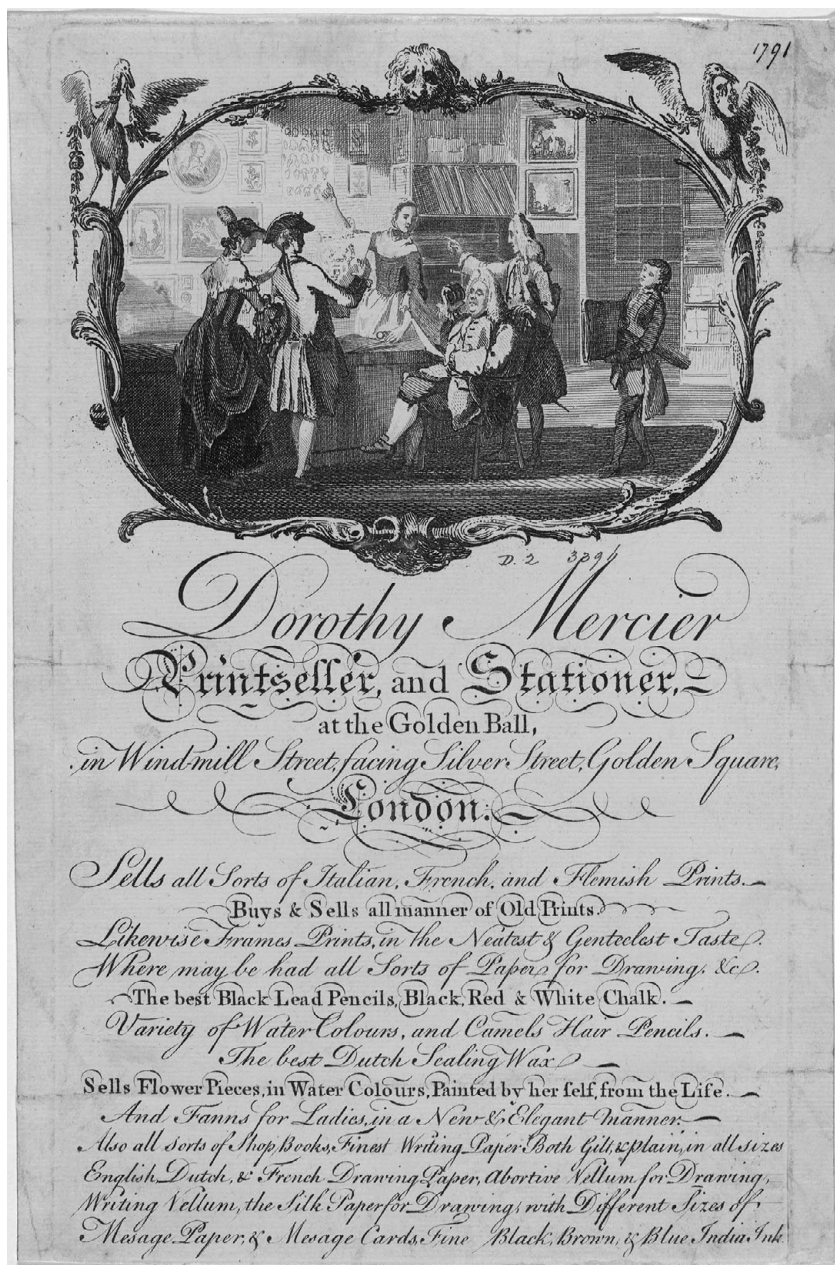 1791
D. 2 3391
Dorothy Mercier
Printseller, and Stationer,
at the Golden Ball,
in Windmill Street, facing Silver Street, Golden Square,
London.
Sells all Sorts of Italian, French, and Flemish Prints.
Buys & Sells all manner of Old Prints.
Likewise Frames Prints, in the Neatest & Genteelest Taste.
Where may be had all Sorts of Paper for Drawing, &c.
The best Black Lead Pencils, Black, Red & White Chalk.
Variety of Water Colours, and Camels Hair Pencils.
The best Dutch Sealing Wax
Sells Flower Pieces, in Water Colours, Painted by her self, from the Life.
And Fanns for Ladies, in a New & Elegant manner.
Also all sorts of Shop Books, Finest Writing Paper Both Gilt, & plain, in all sizes
English, Dutch, & French Drawing Paper, Abortive Vellum for Drawing,
Writing Vellum, the Silk Paper for Drawing, with Different Sizes of
Mesage Paper, & Mesage Cards, Fine Black, Brown, & Blue India Ink